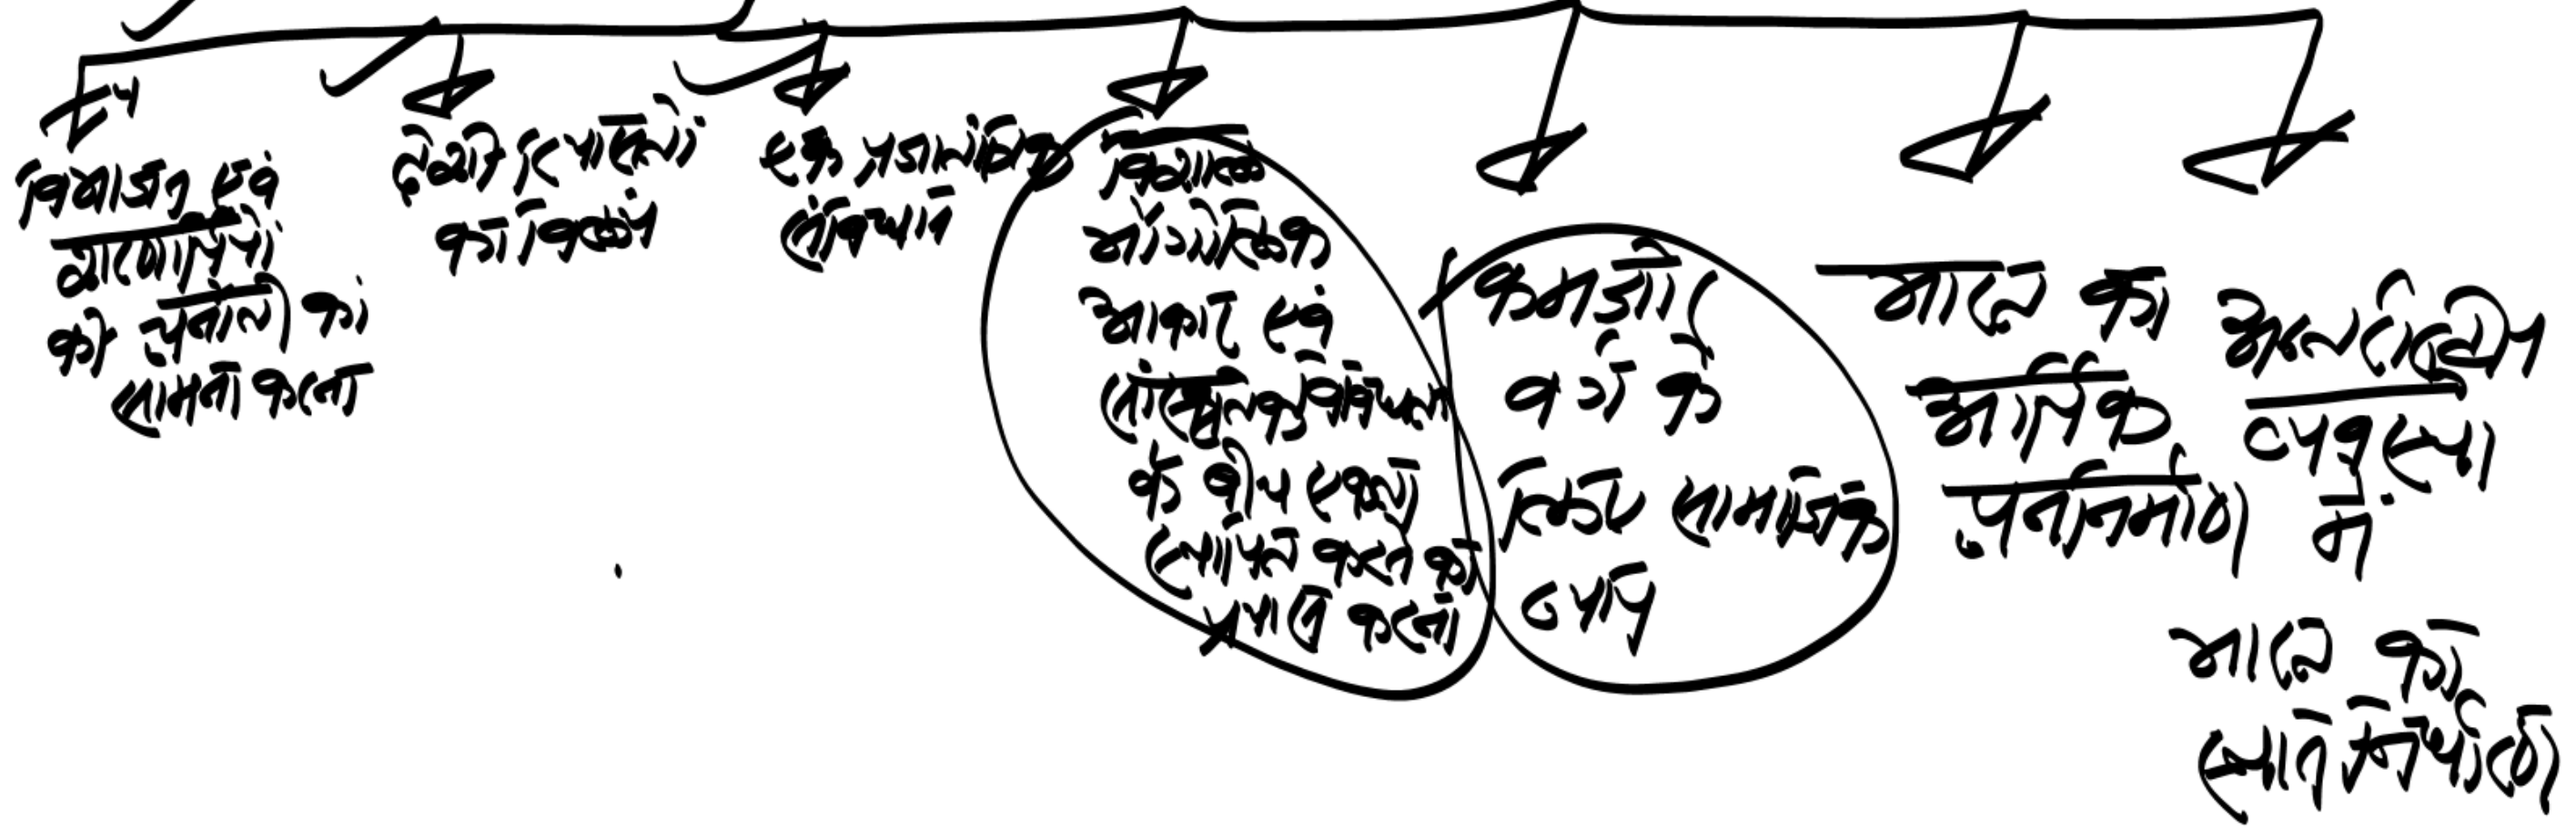 विभाजन एवं
शरणार्थियों
की चुनौती का
सामना करना
देशी रियासतों
का विलय
एक प्रजातांत्रिक
संविधान
विशाल
भौगोलिक
आकार एवं
सांस्कृतिक विविधता
के बीच एकता
स्थापित करने का
प्रयास करना
कमजोर
वर्ग के
लिए सामाजिक
न्याय
भारत का
आर्थिक
पुनर्निर्माण
अन्तर्राष्ट्रीय
व्यवस्था
में
भारत का
स्थान निर्धारण